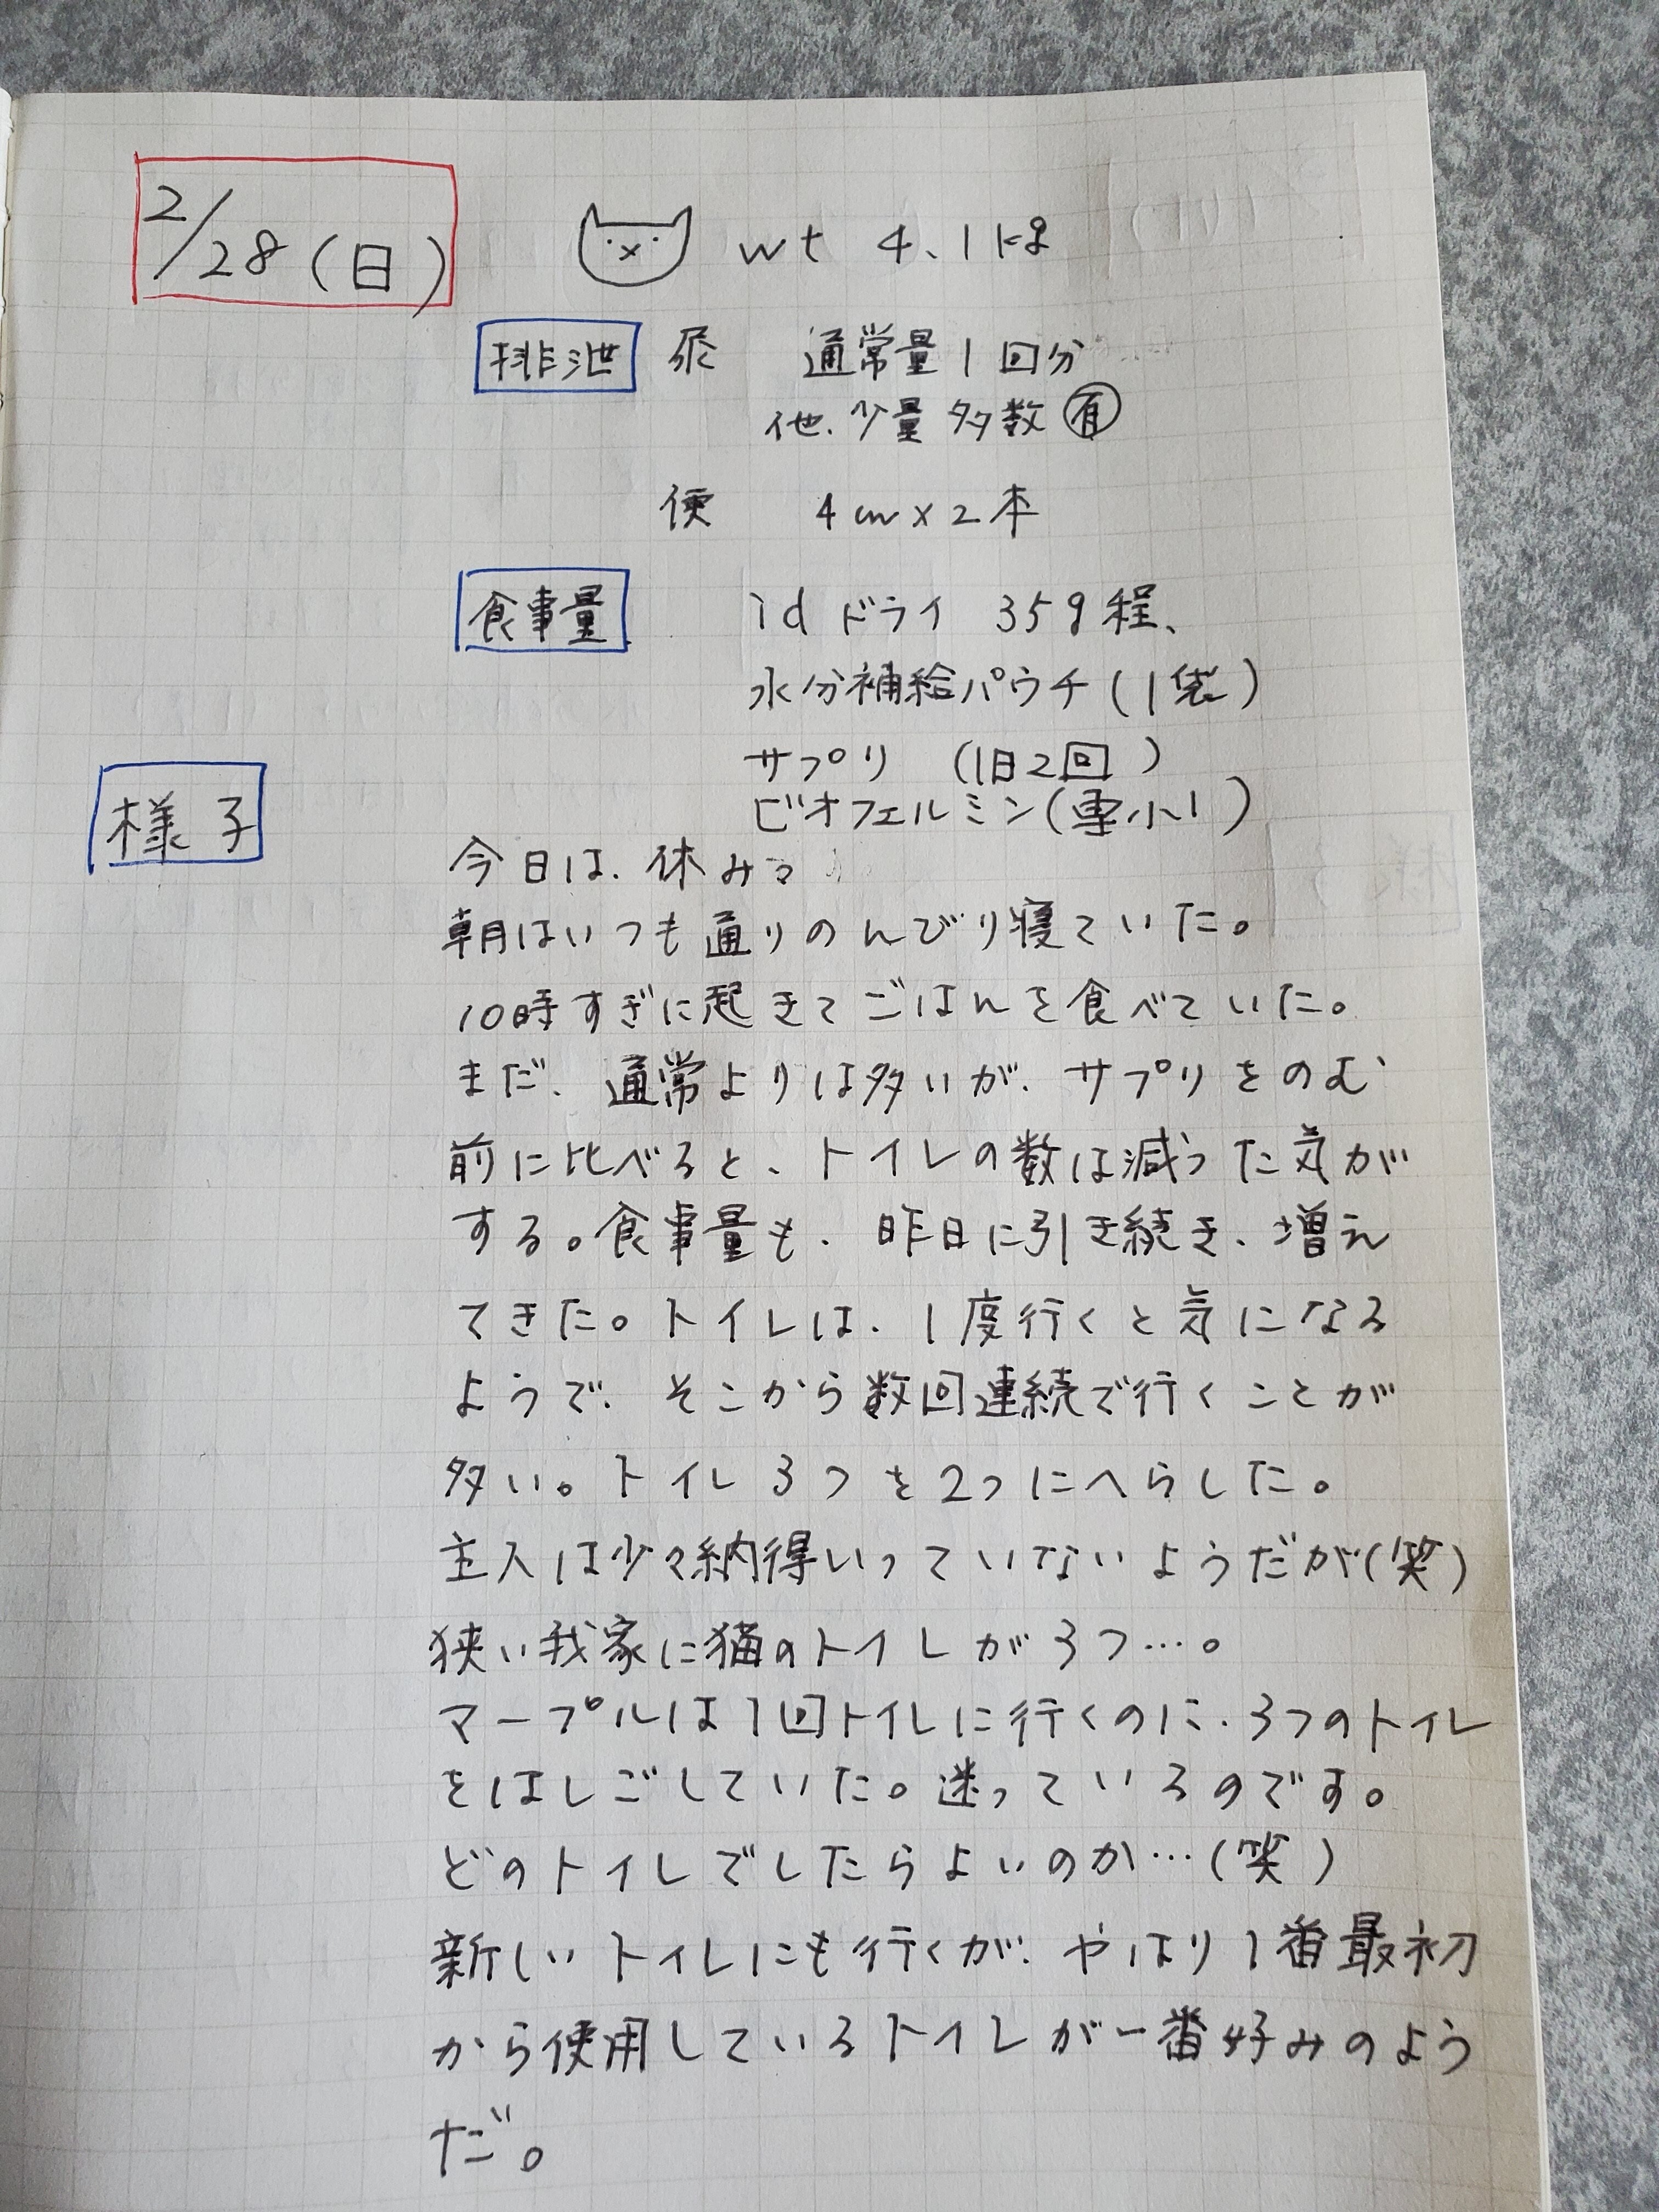 2/28(日)
wt 4.1kg
排泄 尿 通常量1回分
他.少量多数有
便 4cm×2本
食事量 id ドライ 35g程、
水分補給パウチ(1袋)
サプリ (1日2回)
ビオフェルミン(小1)
様子
今日は、休み
朝はいつも通りのんびり寝ていた。
10時すぎに起きてごはんを食べていた。
まだ、通常よりは多いが、サプリをのむ
前に比べると、トイレの数は減った気が
する。食事量も、昨日に引き続き、増え
てきた。トイレは、1度行くと気になる
ようで、そこから数回連続で行くことが
多い。トイレ3つを2つにへらした。
主人は少々納得いっていないようだが(笑)
狭い我家に猫のトイレが3つ…。
マープルは1回トイレに行くのに、3つのトイレ
をはしごしていた。迷っているのです。
どのトイレでしたらよいのか…(笑)
新しいトイレにも行くが、やはり1番最初
から使用しているトイレが一番好みのよう
だ。